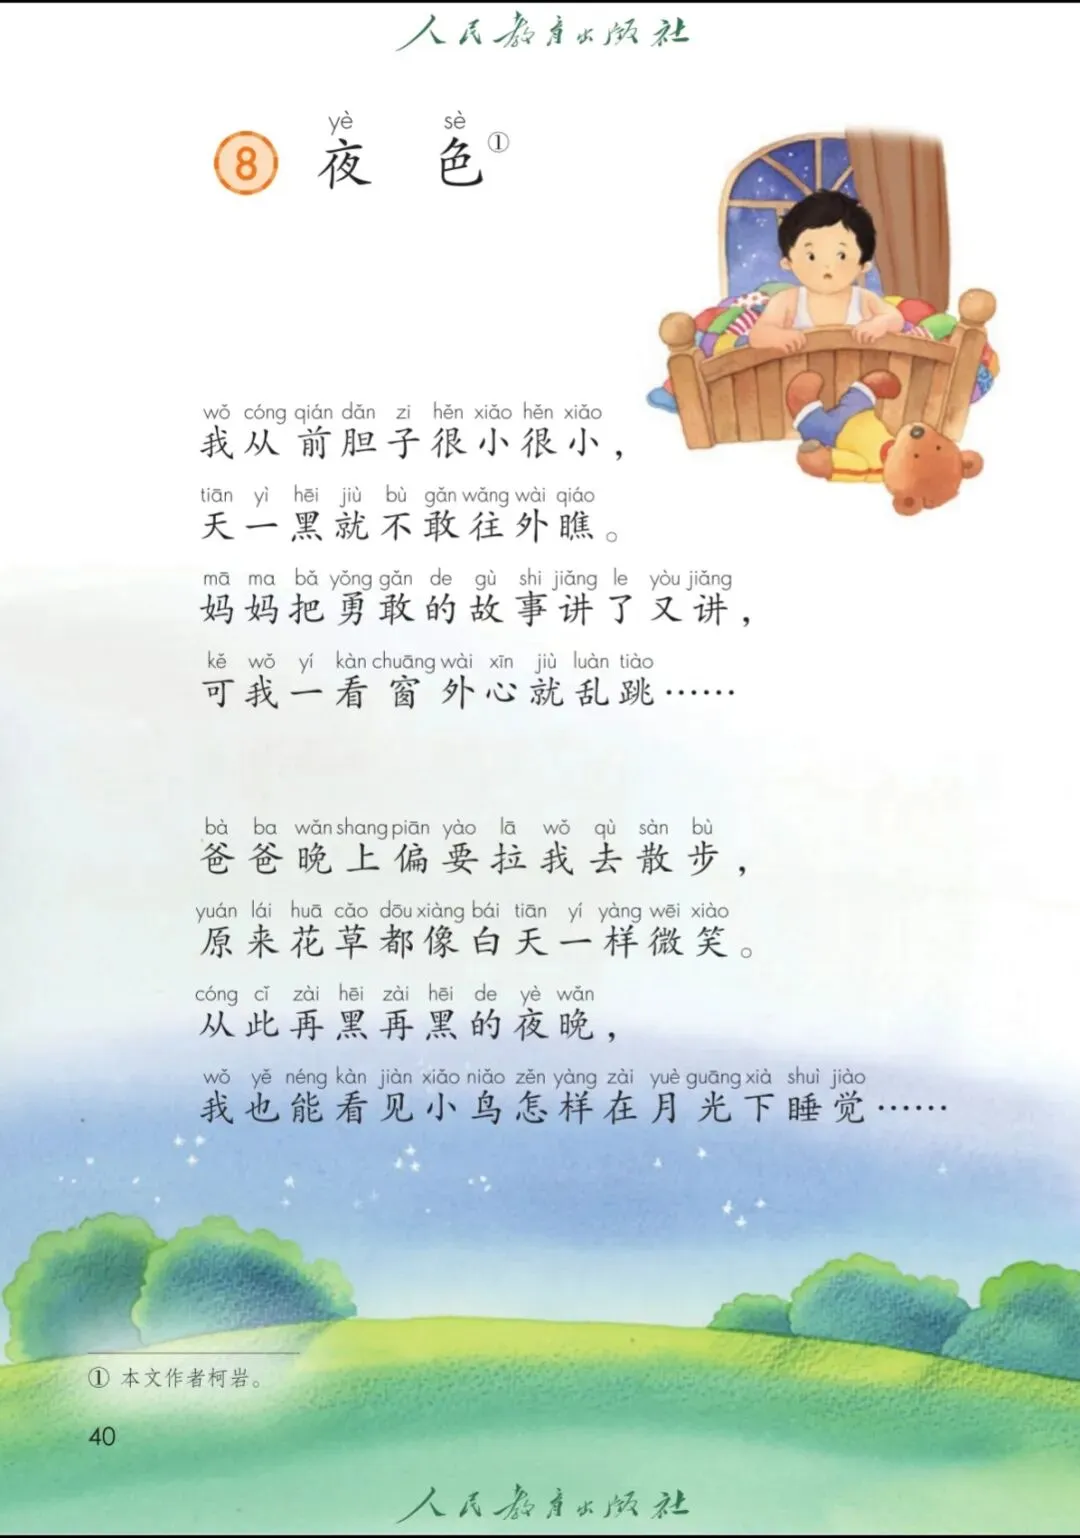 人民教育出版社
yè sè
8 夜色①
wǒ cóng qián dǎn zi hěn xiǎo hěn xiǎo
我从前胆子很小很小，
tiān yì hēi jiù bù gǎn wǎng wài qiáo
天一黑就不敢往外瞧。
mā ma bǎ yǒng gǎn de gù shi jiǎng le yòu jiǎng
妈妈把勇敢的故事讲了又讲，
kě wǒ yí kàn chuāng wài xīn jiù luàn tiào
可我一看窗外心就乱跳……
bà ba wǎn shang piān yào lā wǒ qù sàn bù
爸爸晚上偏要拉我去散步，
yuán lái huā cǎo dōu xiàng bái tiān yí yàng wēi xiào
原来花草都像白天一样微笑。
cóng cǐ zài hēi zài hēi de yè wǎn
从此再黑再黑的夜晚，
wǒ yě néng kàn jiàn xiǎo niǎo zěn yàng zài yuè guāng xià shuì jiào
我也能看见小鸟怎样在月光下睡觉……
① 本文作者柯岩。
40
人民教育出版社